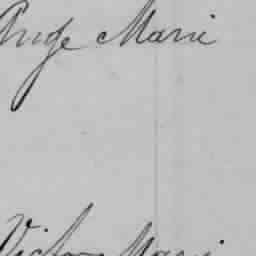 Ange Marie
Victor Marie